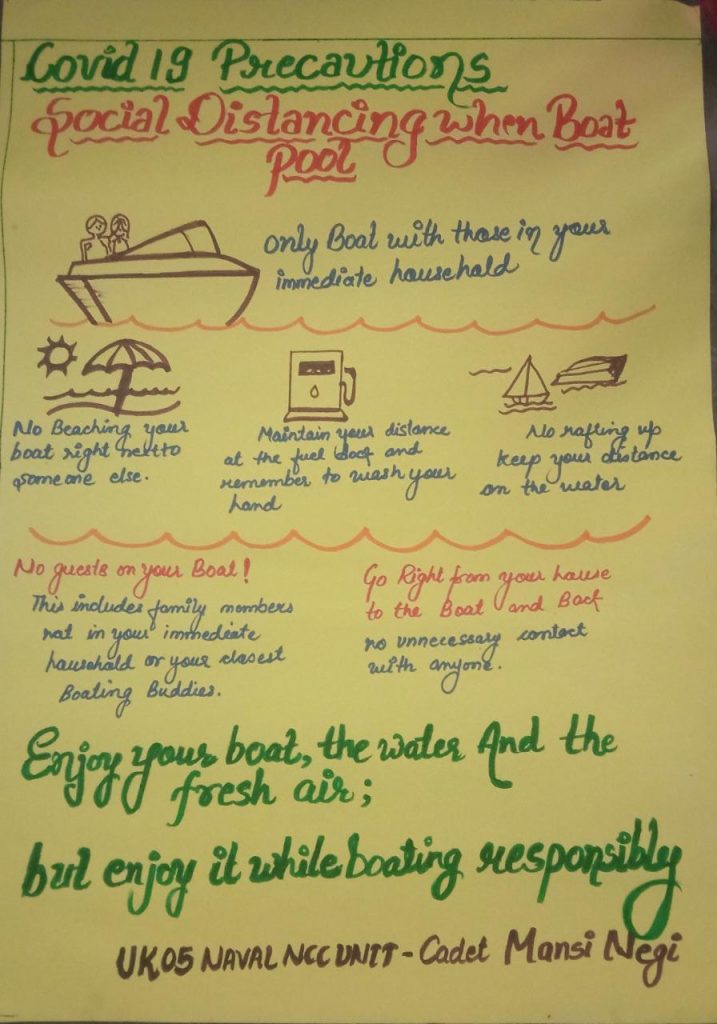 Covid 19 Precautions
Social Distancing when Boat
Pool
only Boat with those in your
immediate household
No Beaching your
boat right next to
someone else.
Maintain your distance
at the fuel dock and
remember to wash your
hand
No rafting up
keep your distance
on the water
No guests on your Boat!
This includes family members
not in your immediate
household or your closest
Boating Buddies.
Go Right from your house
to the Boat and Back
no unnecessary contact
with anyone.
Enjoy your boat, the water And the
fresh air;
but enjoy it while boating responsibly
UK05 NAVAL NCC UNIT - Cadet Mansi Negi